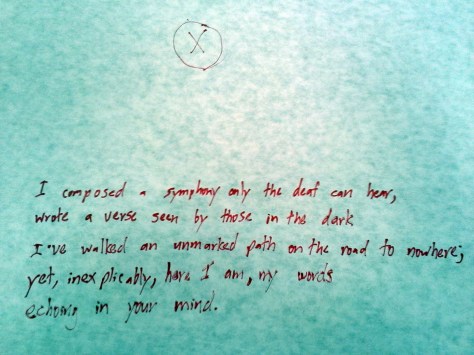 X
I composed a symphony only the deaf can hear,
wrote a verse seen by those in the dark
I've walked an unmarked path on the road to nowhere;
yet, inexplicably, here I am, my words
echoing in your mind.